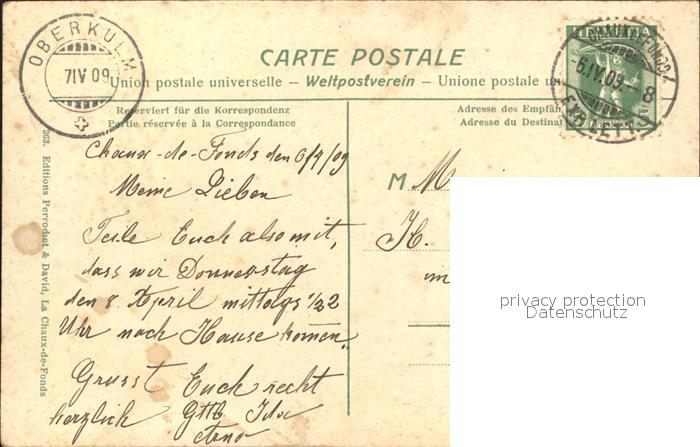 OBERKULM
7 IV 09
CARTE POSTALE
Union postale universelle – Weltpostverein – Unione postale un
CHAUX-DE-FONDS 1
6.IV.09.– 8
LETTR
Reserviert für die Korrespondenz
Partie réservée à la Correspondance
Adresse des Empfän
Adresse du Destinat
363. Editions Perrochet & David, La Chaux-de-Fonds
Chaux-de-Fonds den 6/4/09
Meine Lieben
Teile Euch also mit,
dass wir Donnerstag
den 8. April mittags 1/2 2
Uhr nach Hause kommen.
Grusst Euch recht
herzlich Ida
M
H.
privacy protection
Datenschutz